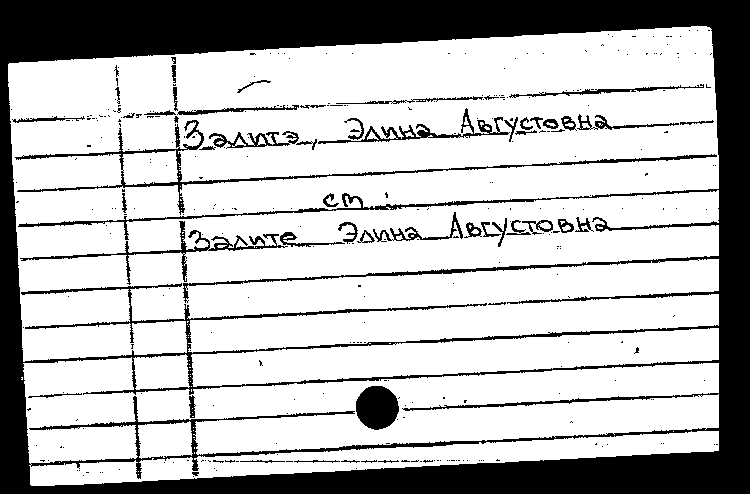 Залитэ, Элина Августовна
см :
Залите Элина Августовна